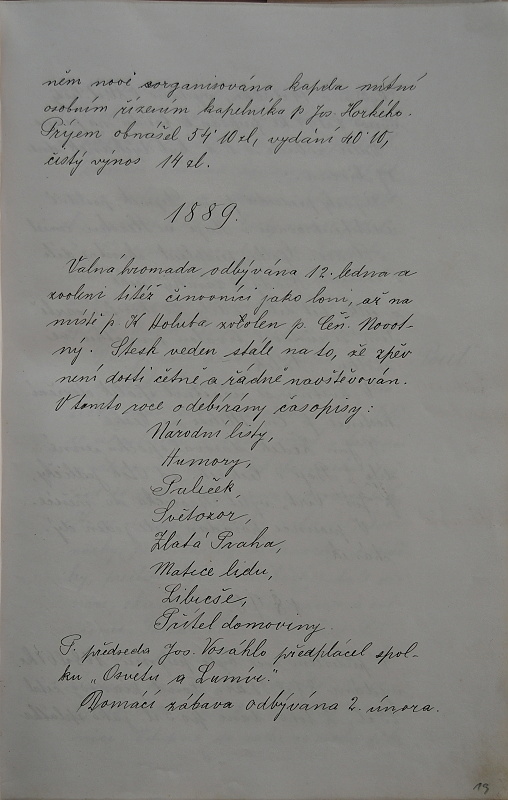 něm nově zorganisována kapela místní
osobním řízením kapelníka p Jos. Horkého.
Příjem obnášel 54˙10 zl, vydání 40˙10,
čistý výnos 14 zl.
1889.
Valná hromada odbývána 12. ledna a
zvoleni titéž činovníci jako loni, až na
místě p. K Holuba zvolen p. Čeň. Novot-
ný. Stesk veden stále na to, že zpěv
není dosti četně a řádně navštěvován.
V tomto roce odebírány časopisy:
Národní listy,
Humory,
Paleček,
Světozor,
Zlatá Praha,
Matice lidu,
Libuše,
Přítel domoviny.
P. předseda Jos. Vosáhlo předplácel spol-
ku „Osvětu a Lumír."
Domácí zábava odbývána 2. února.
19